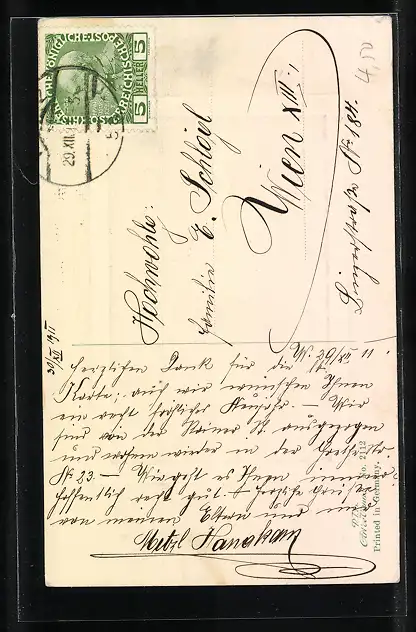 KAISERLICHE KÖNIGLICHE ÖSTERREICHISCHE POST
5 HELLER 5
29.XII.
4,50
Hochwohle:
Familie E. Schlögl
Wien XIII.,
Linzerstraße No 184.
30/XII 1911
W. 29/XII 11
Herzlichen Dank für die
Karte, auch wir wünschen Ihnen
ein recht fröhliches Neujahr. — Wir
sind von der ausgezogen
und wohnen wieder in der
No 23. — Wie geht es Ihnen immer
hoffentlich recht gut. — herzliche Grüße
von meinen Eltern und
Mitzl
No. 2112
Printed in Germany.